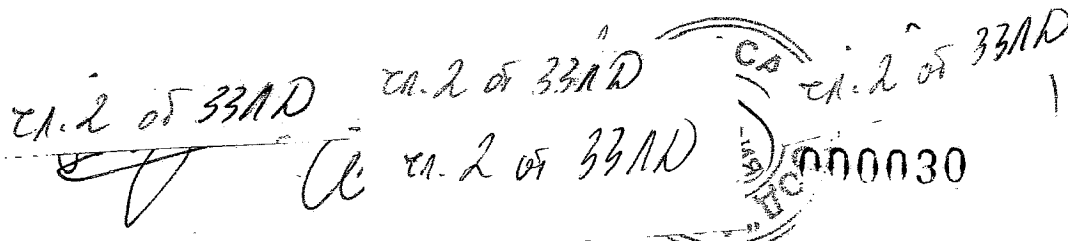 чл.2 от ЗЗЛД чл.2 от ЗЗЛД чл.2 от ЗЗЛД
чл.2 от ЗЗЛД 000030
СА